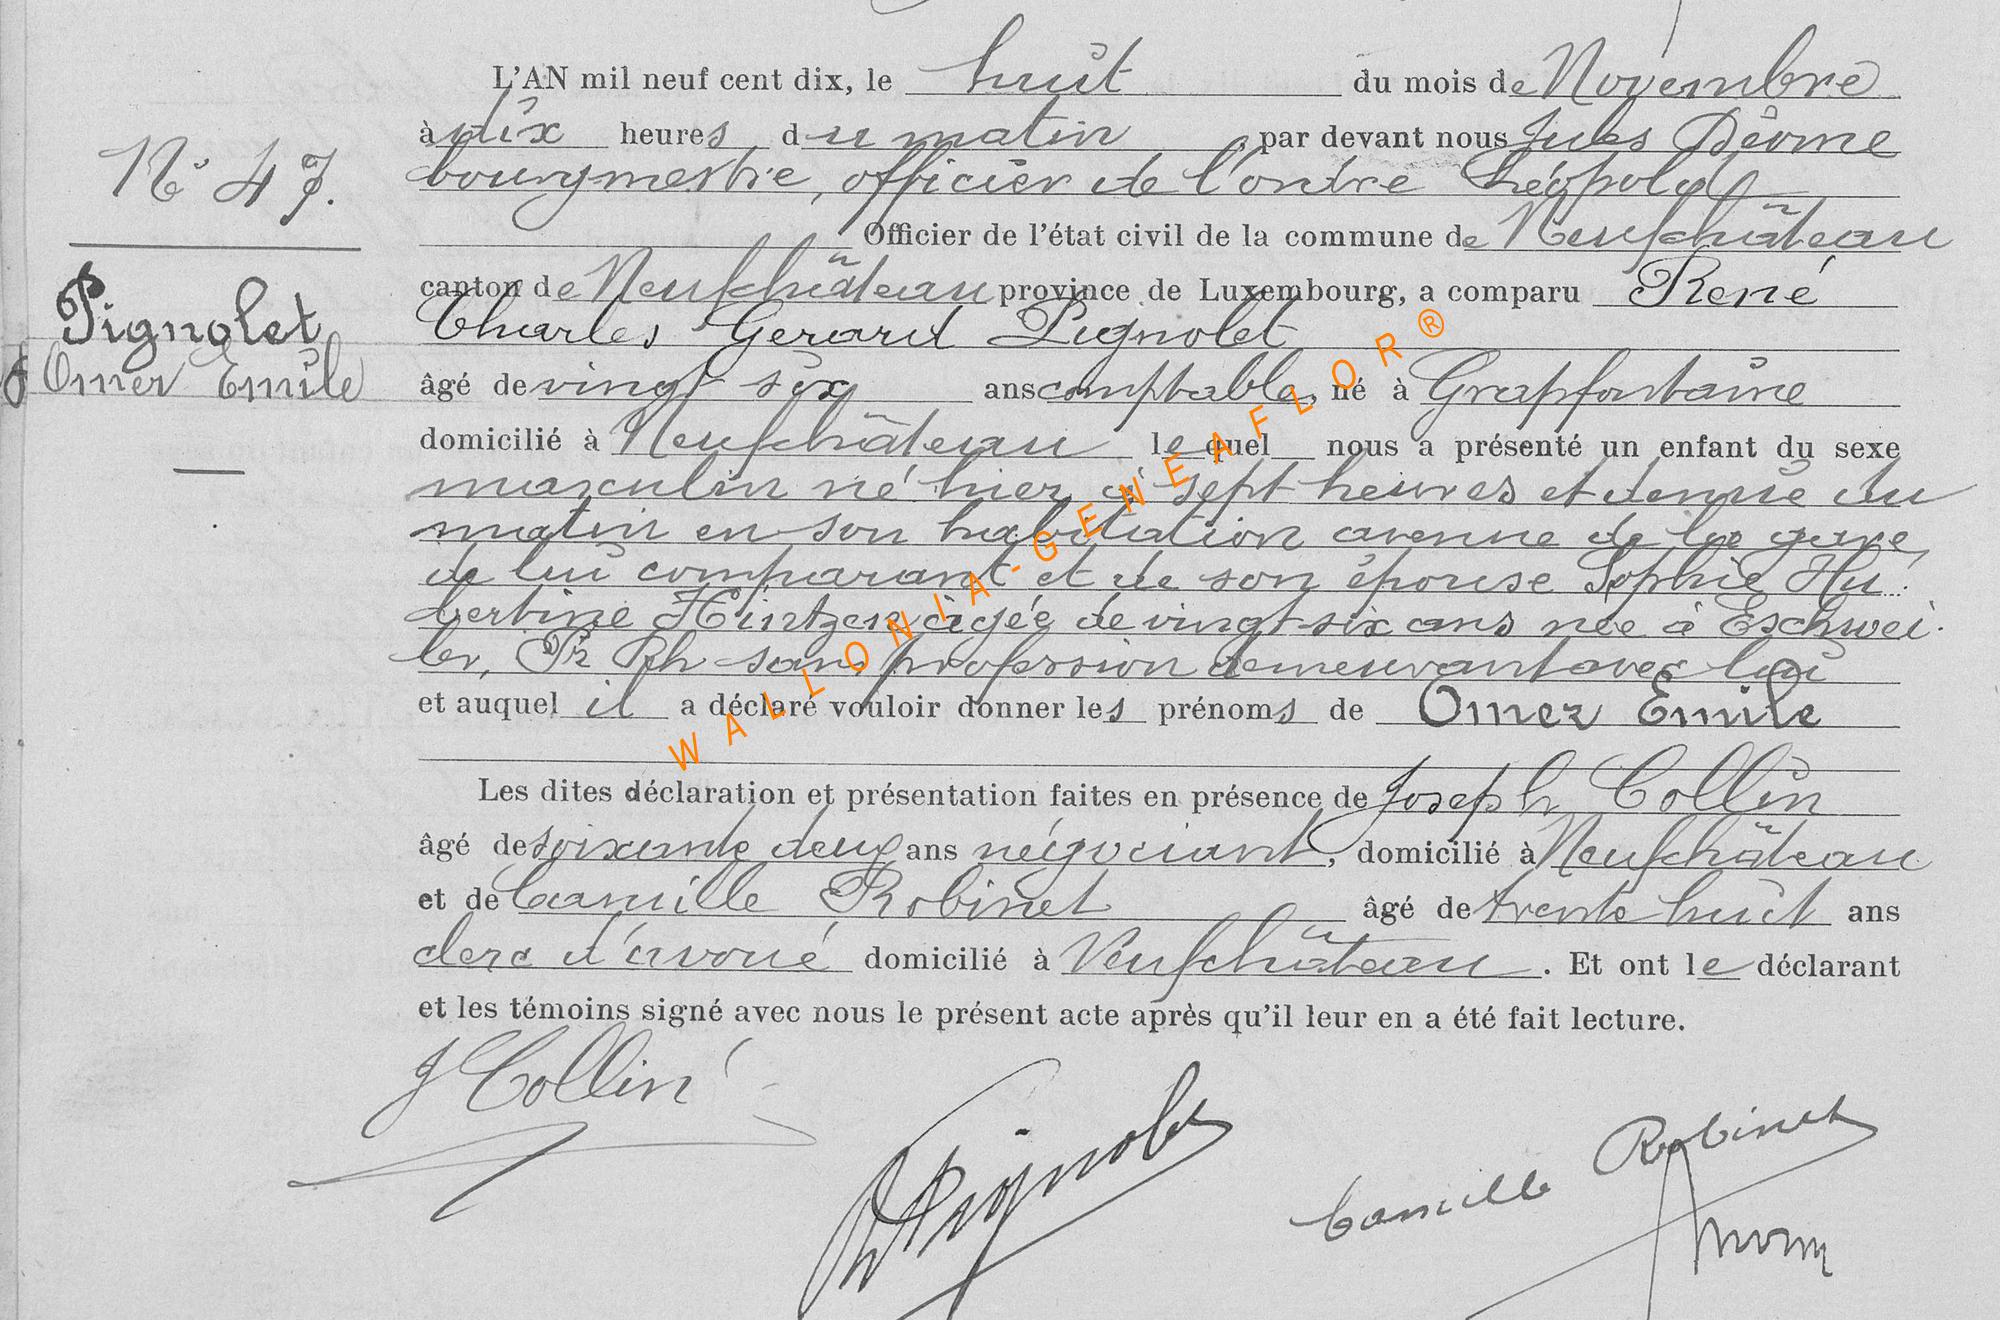 L'AN mil neuf cent dix, le huit du mois de Novembre
à dix heures du matin, par devant nous Jules Dêome
bourgmestre, officier de l'ordre Léopold
Officier de l'état civil de la commune de Neufchâteau
N° 47.
canton de Neufchâteau province de Luxembourg, a comparu René
Charles Gerard Pignolet
Pignolet
Omer Emile
âgé de vingt six ans comptable, né à Grapfontaine
domicilié à Neufchâteau lequel nous a présenté un enfant du sexe
masculin né hier à sept heures et demie du
matin en son habitation avenue de la gare,
de lui comparant et de son épouse Sophie Hu
bertine Hintzen âgée de vingt-six ans née à Eschwei
ler, Pr Rh sans profession demeurant avec lui
et auquel il a déclaré vouloir donner les prénoms de Omer Emile
Les dites déclaration et présentation faites en présence de Joseph Collin
âgé de soixante deux ans négociant, domicilié à Neufchâteau
et de Camille Robinet âgé de trente huit ans
clerc d'avoué domicilié à Neufchâteau. Et ont le déclarant
et les témoins signé avec nous le présent acte après qu'il leur en a été fait lecture.
J Collin
R Pignolet
Camille Robinet
WALLONIA-GENEAFLOR®